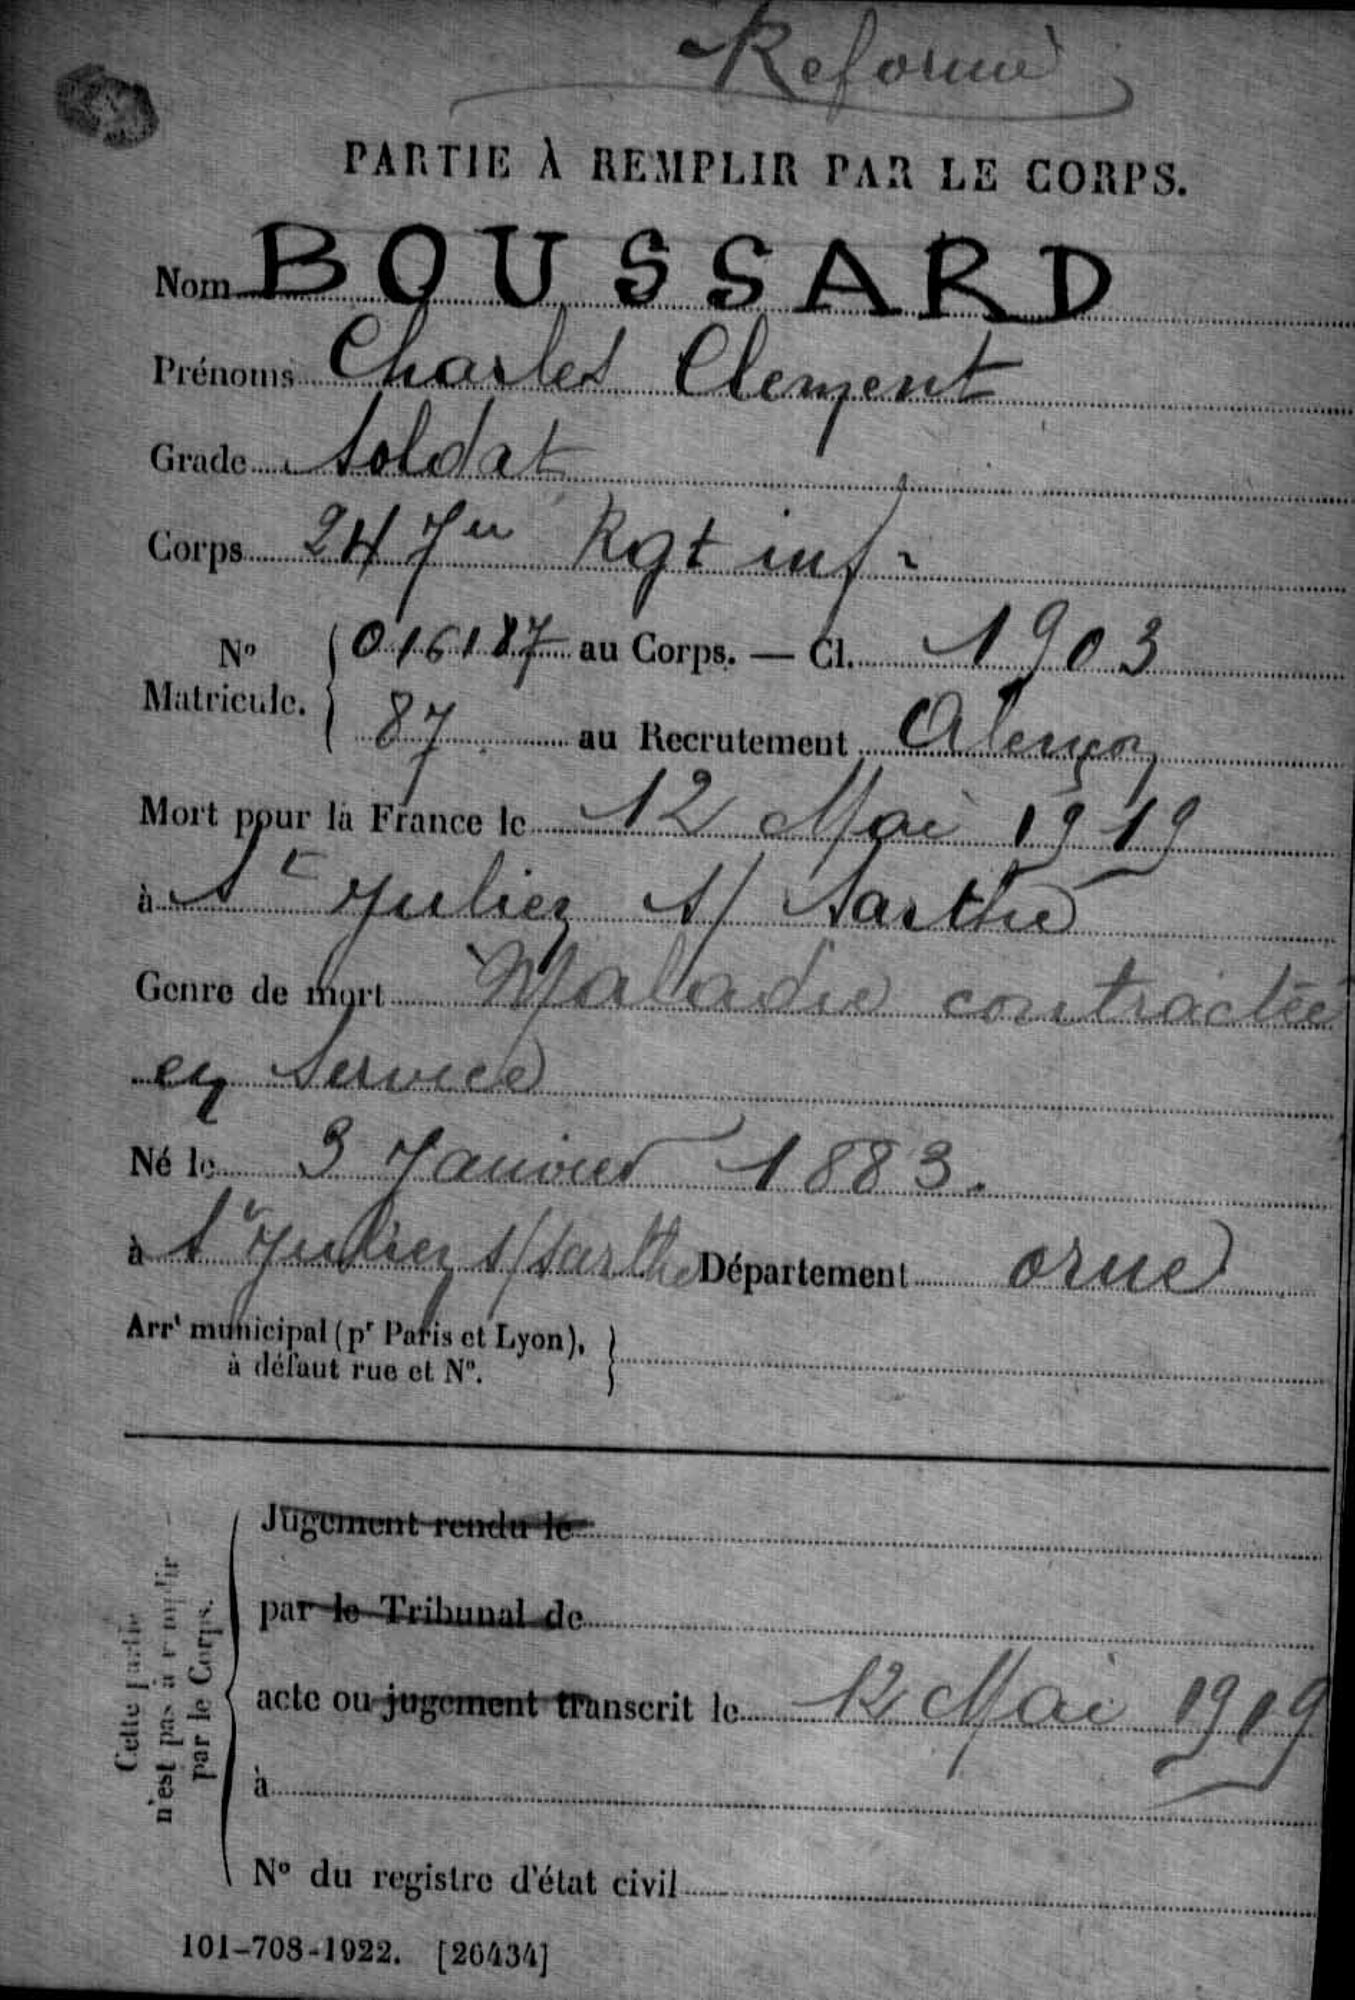 Reformé
PARTIE À REMPLIR PAR LE CORPS.
Nom BOUSSARD
Prénoms Charles Clement
Grade Soldat
Corps 247e Rgt inf
No Matricule. 016187 au Corps. — Cl. 1903
87 au Recrutement Alençon
Mort pour la France le 12 Mai 1919
à St Julien s/ Sarthe
Genre de mort Maladie contractée
en service
Né le 3 Janvier 1883.
à St Julien s/Sarthe Département orne
Arrt municipal (pr Paris et Lyon),
à défaut rue et No.
Cette partie
n'est pas à remplir
par le Corps.
Jugement rendu le
par le Tribunal de
acte ou jugement transcrit le 12 Mai 1919
à
No du registre d'état civil
101-708-1922. [26434]